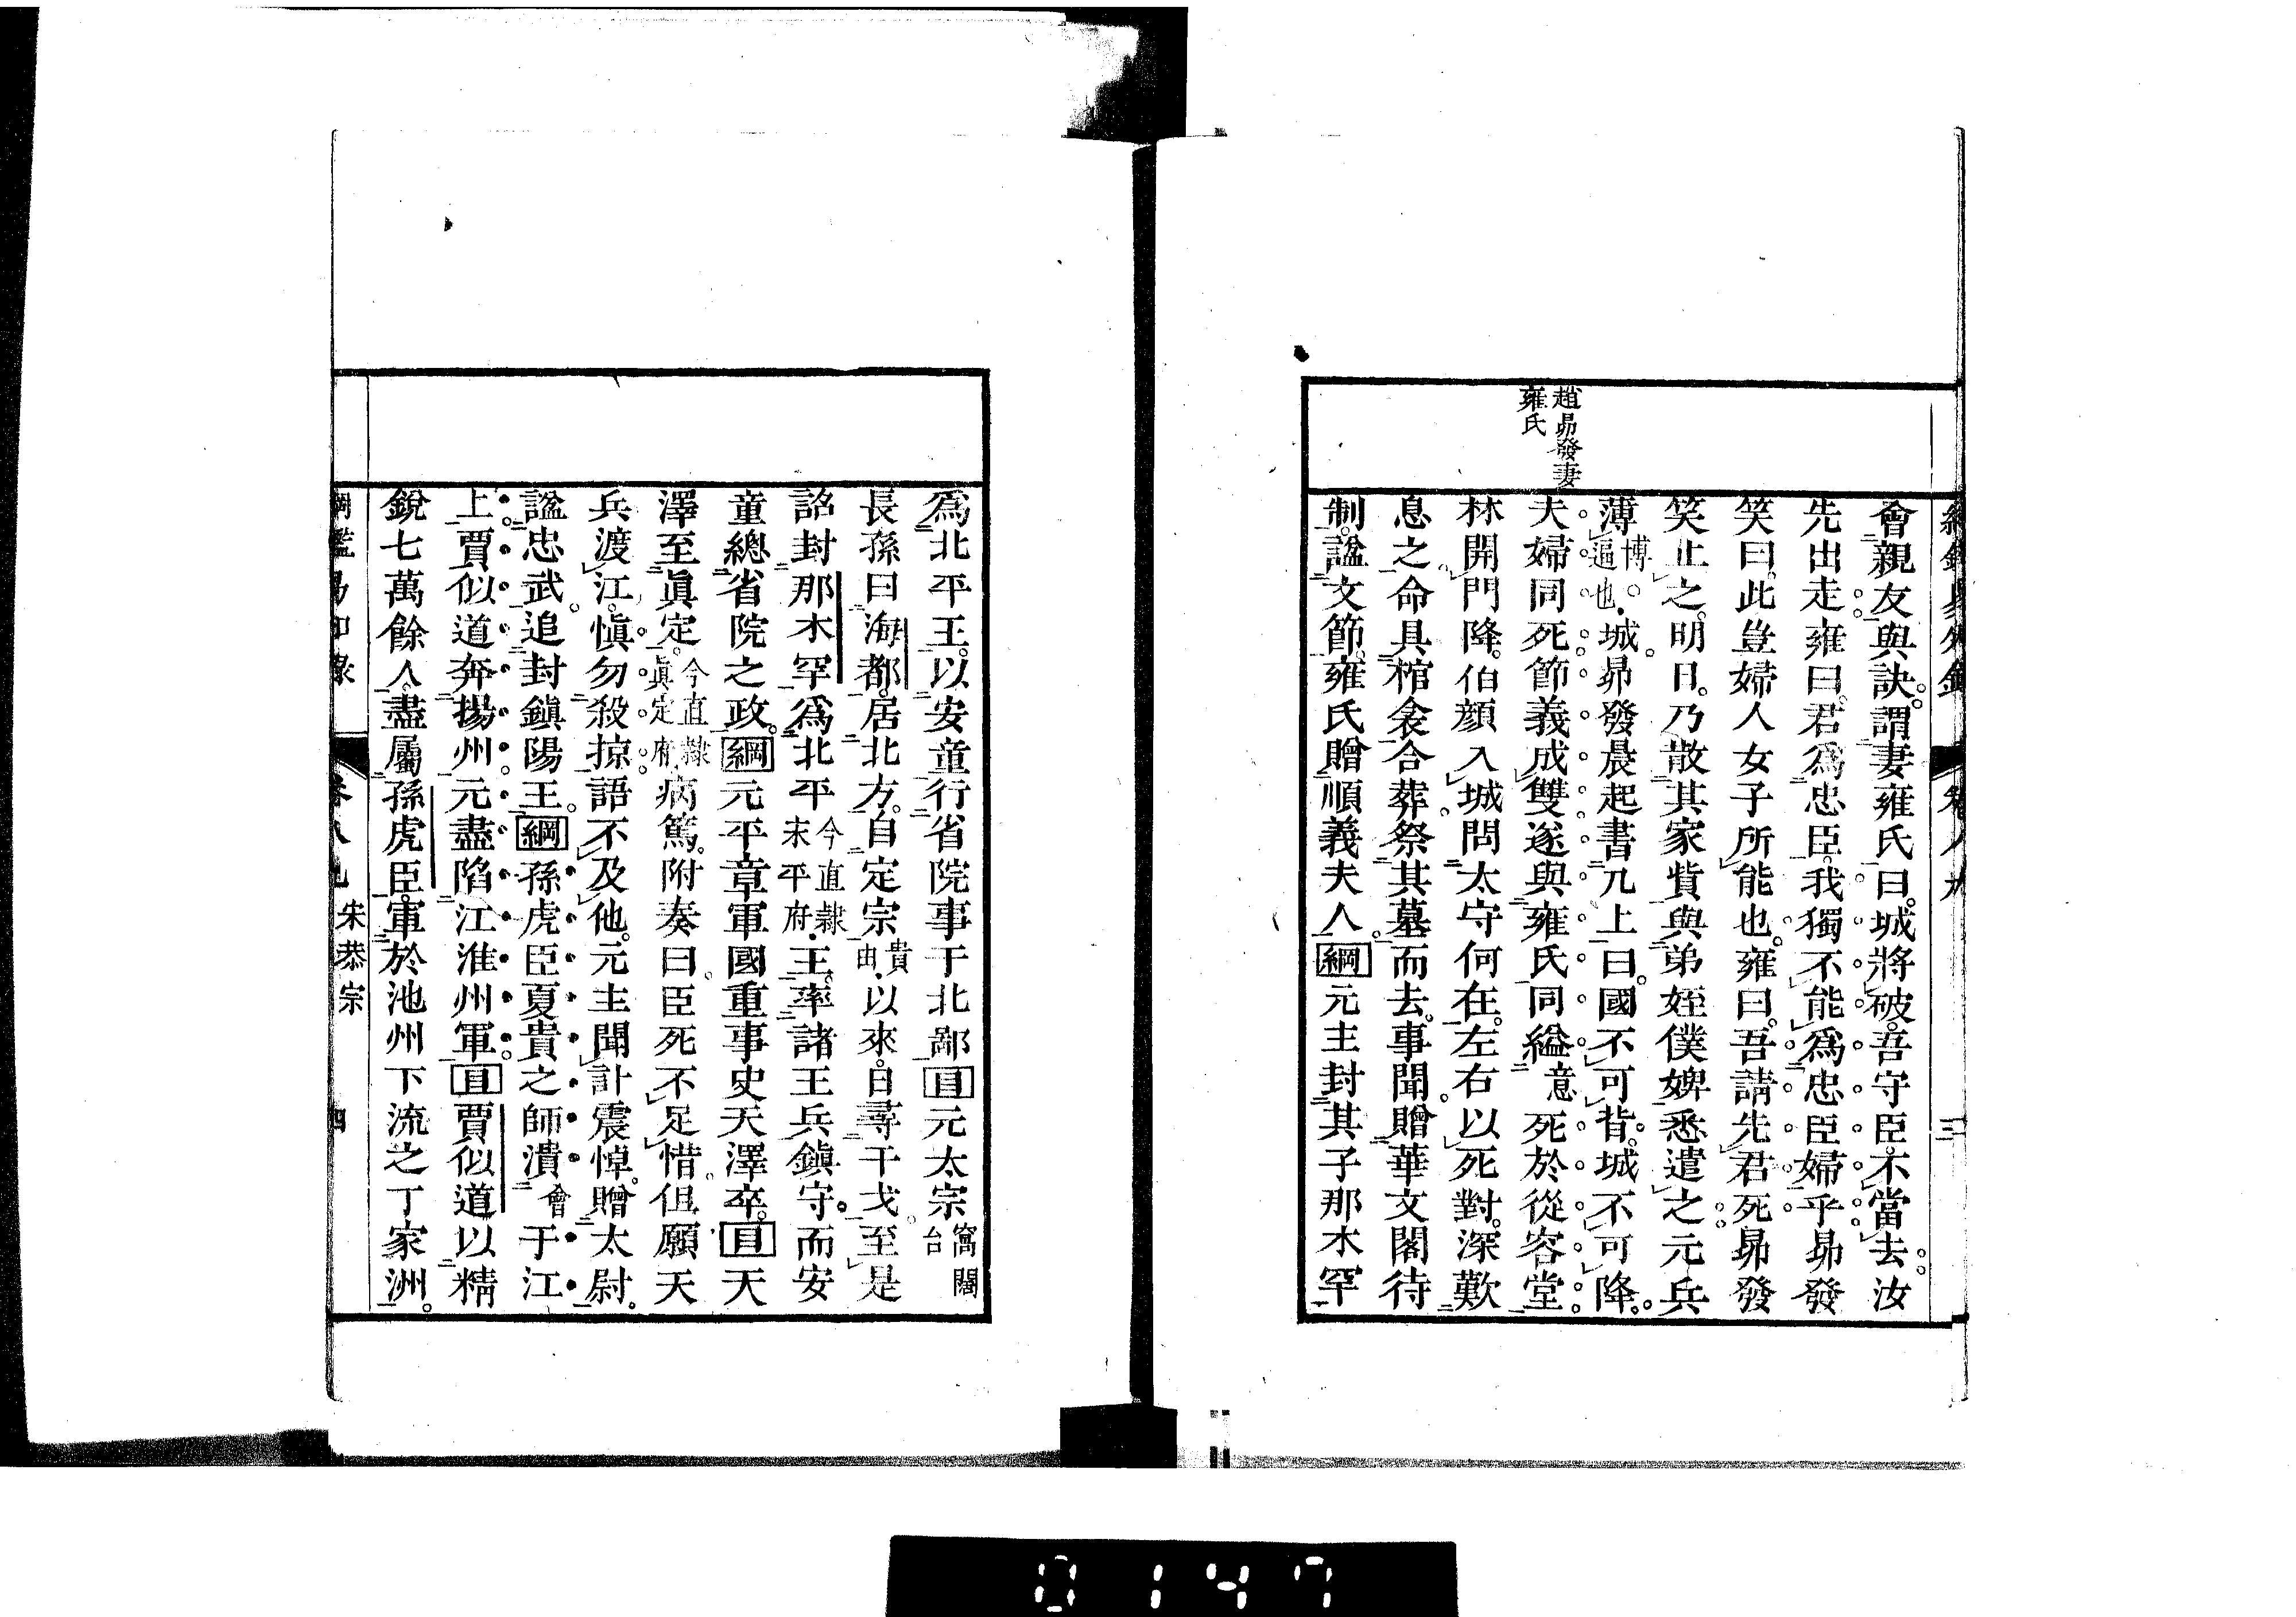 趙昴發妻
雍氏
會親友與訣。謂妻雍氏曰。城將破。吾守臣。不當去。汝
先出走。雍曰。君爲忠臣。我獨不能爲忠臣婦乎。昴發
笑曰。此豈婦人女子所能也。雍曰。吾請先君死。昴發
笑止之。明日。乃散其家貲與弟姪僕婢悉遣之。元兵
薄博。逼也。城。昴發晨起書几上曰。國不可背。城不可降。
夫婦同死節義成雙。遂與雍氏同縊意死於從容堂
林開門降。伯顏入城問太守何在。左右以死對。深歎
息之。命具棺衾合葬。祭其墓而去。事聞。贈華文閣待
制。諡文節。雍氏贈順義夫人。綱元主封其子那木罕
爲北平王。以安童行省院事于北鄙目元太宗窩闊台
長孫曰海都。居北方。自定宗貴由以來。日尋干戈。至是
詔封那木罕爲北平今直隸永平府王。率諸王兵鎮守。而安
童總省院之政。綱元平章軍國重事史天澤卒。目天
澤至眞定。今直隸眞定府病篤。附奏曰。臣死不足惜。但願天
兵渡江。愼勿殺掠。語不及他。元主聞訃震悼。贈太尉。
諡忠武。追封鎮陽王。綱孫虎臣夏貴之師潰會于江
上。賈似道奔揚州。元盡陷江淮州軍。目賈似道以精
銳七萬餘人。盡屬孫虎臣。軍於池州下流之丁家洲。
綱鑑易知録 卷八九 宋恭宗 四